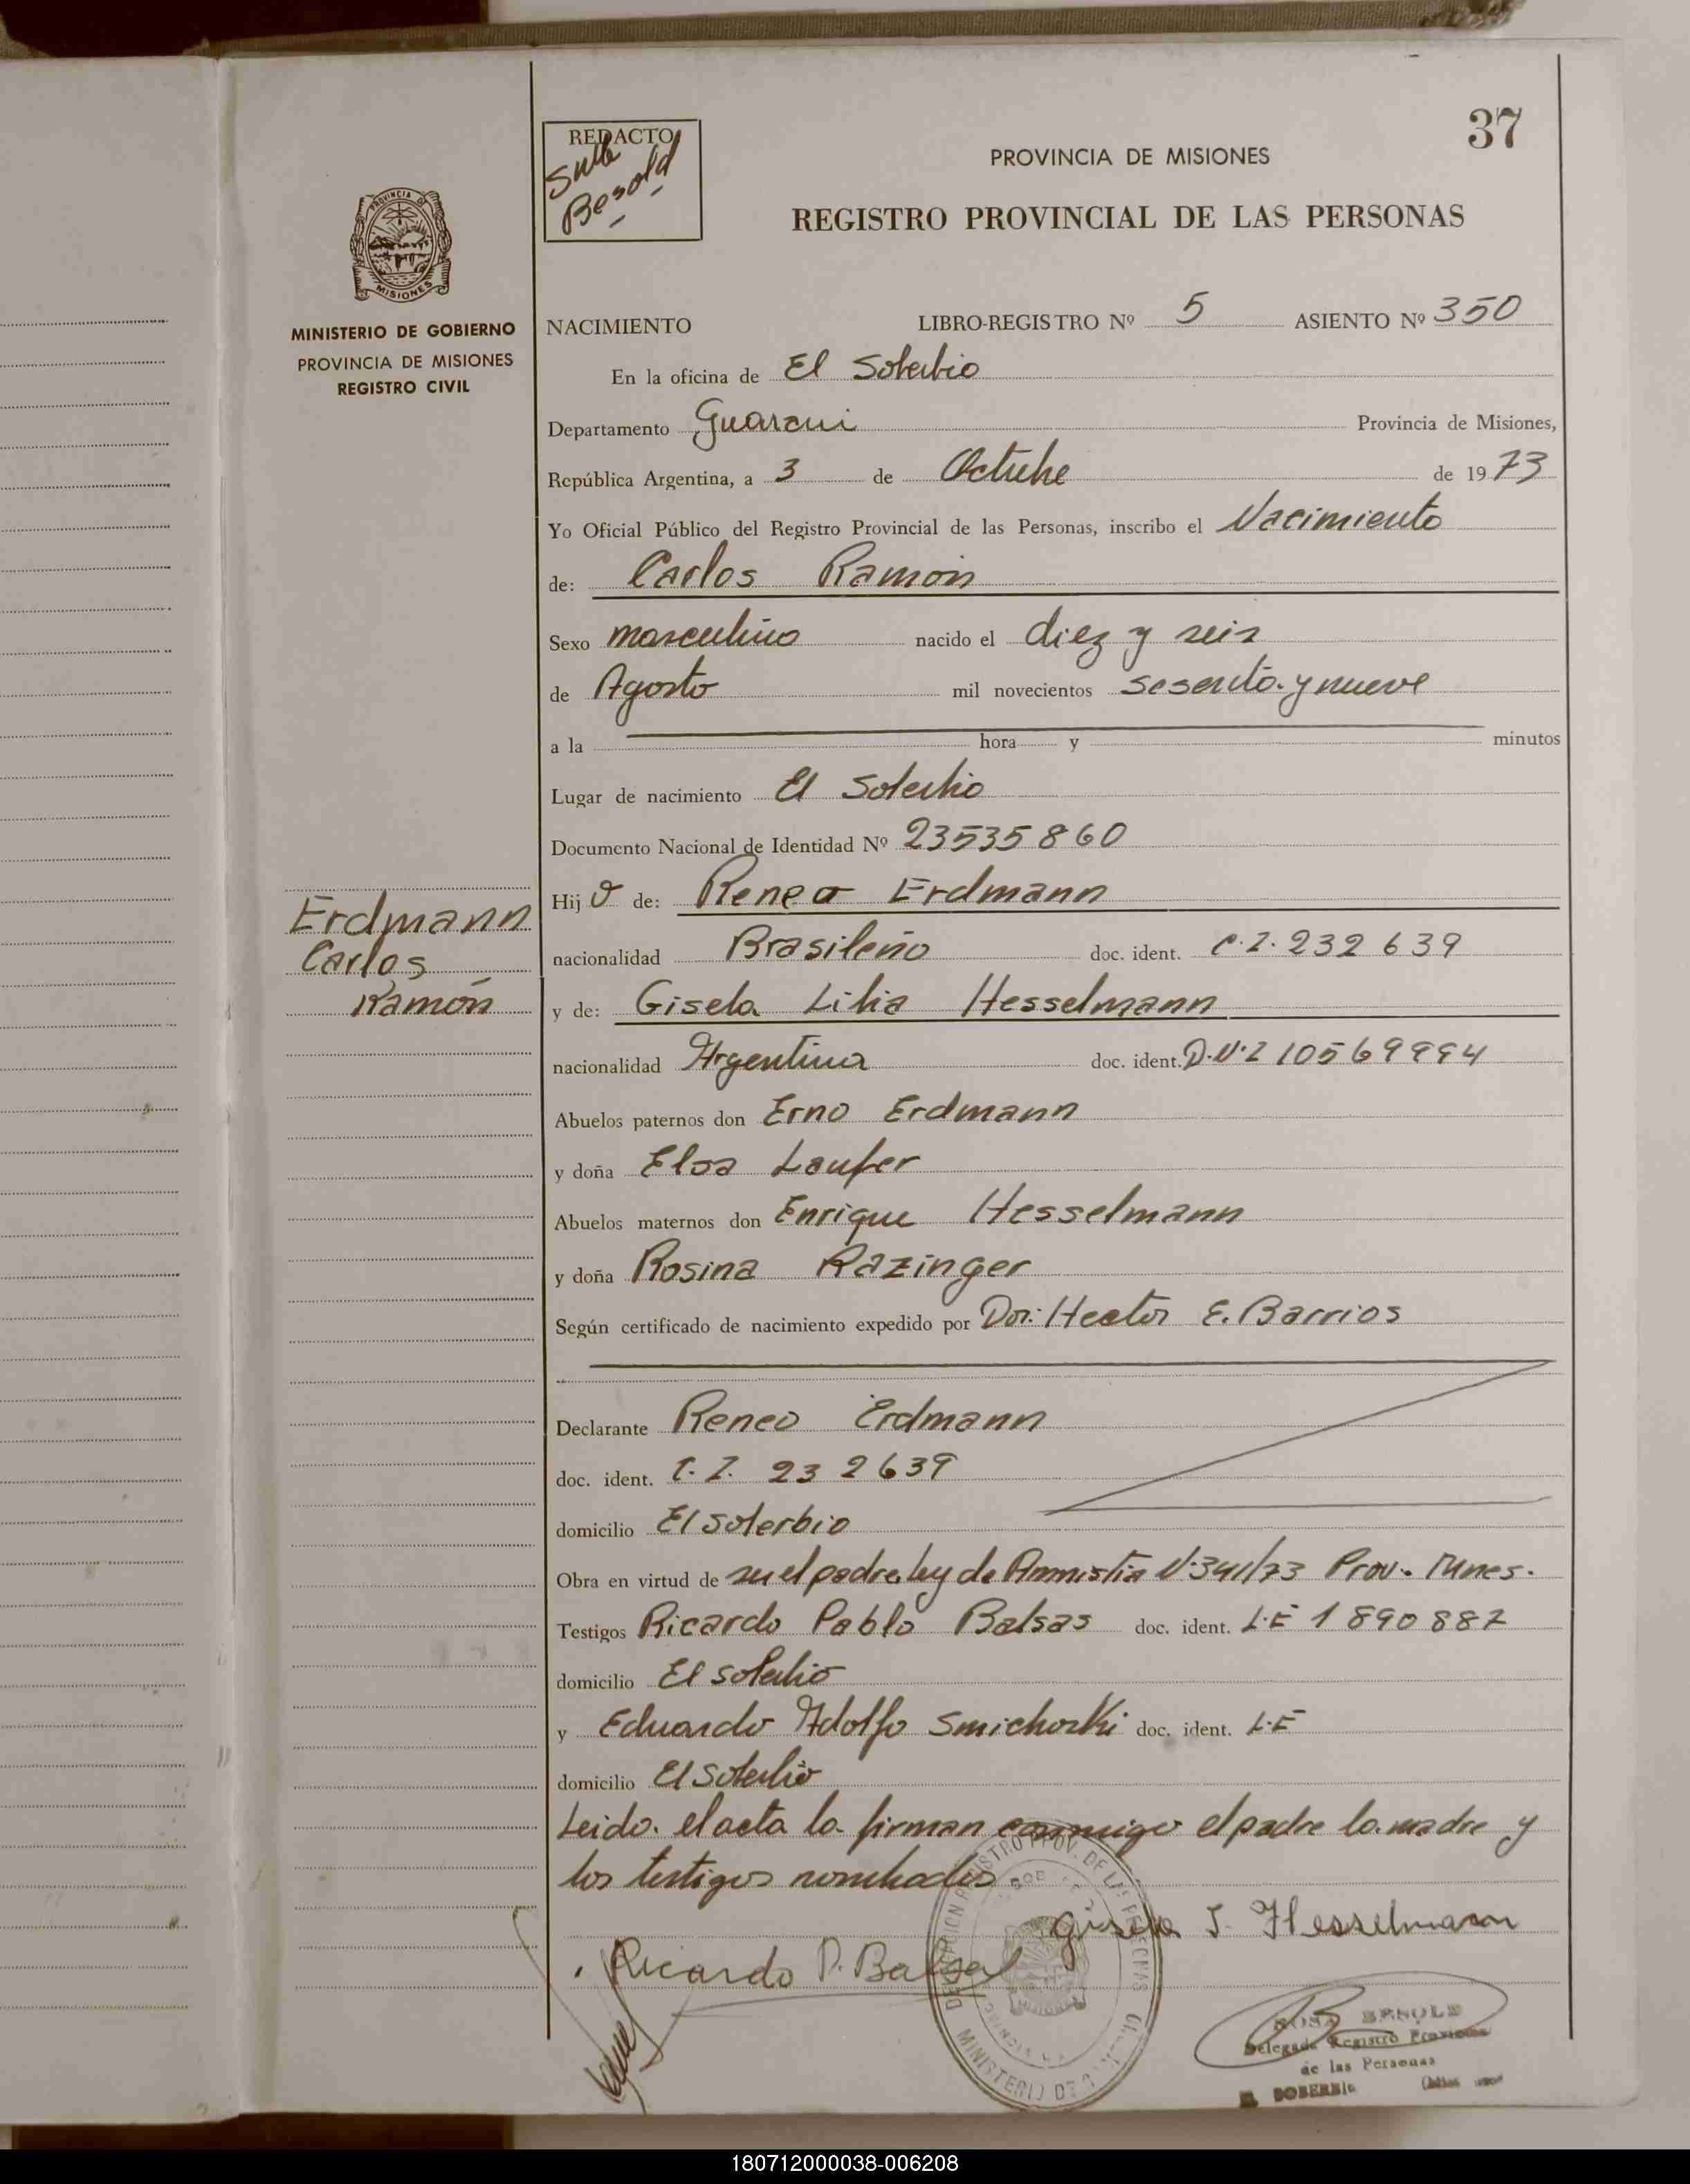 37
REDACTO
Besold
PROVINCIA DE MISIONES
REGISTRO PROVINCIAL DE LAS PERSONAS
PROVINCIA DE
MISIONES
MINISTERIO DE GOBIERNO
PROVINCIA DE MISIONES
REGISTRO CIVIL
NACIMIENTO LIBRO-REGISTRO Nº 5 ASIENTO Nº 350
En la oficina de El Soberbio
Departamento Guarani Provincia de Misiones,
República Argentina, a 3 de Octubre de 1973
Yo Oficial Público del Registro Provincial de las Personas, inscribo el Nacimiento
de: Carlos Ramon
Sexo masculino nacido el diez y seis
de Agosto mil novecientos sesenta y nueve
a la hora y minutos
Lugar de nacimiento El Soberbio
Documento Nacional de Identidad Nº 23535860
Hijo de: Reneo Erdmann
Erdmann
Carlos
Ramón
nacionalidad Brasileño doc. ident. C.I. 232639
y de: Gisela Lilia Hesselmann
nacionalidad Argentina doc. ident. D.N.I 10569994
Abuelos paternos don Erno Erdmann
y doña Elsa Laufer
Abuelos maternos don Enrique Hesselmann
y doña Rosina Razinger
Según certificado de nacimiento expedido por Dor: Hector E. Barrios
Declarante Reneo Erdmann
doc. ident. C.I. 232639
domicilio El Soberbio
Obra en virtud de ser el padre ley de Amnistia N.341/73 Prov. Mnes.
Testigos Ricardo Pablo Balsas doc. ident. L.E 1890887
domicilio El Soberbio
y Eduardo Adolfo Smichoski doc. ident. L.E
domicilio El Soberbio
Leido el acta la firman conmigo el padre la madre y
los testigos nombrados.
Gisela I. Hesselmann
Ricardo P. Balsas
ROSA BESOLD
Delegada Registro Provincial
de las Personas
EL SOBERBIO
180712000038-006208